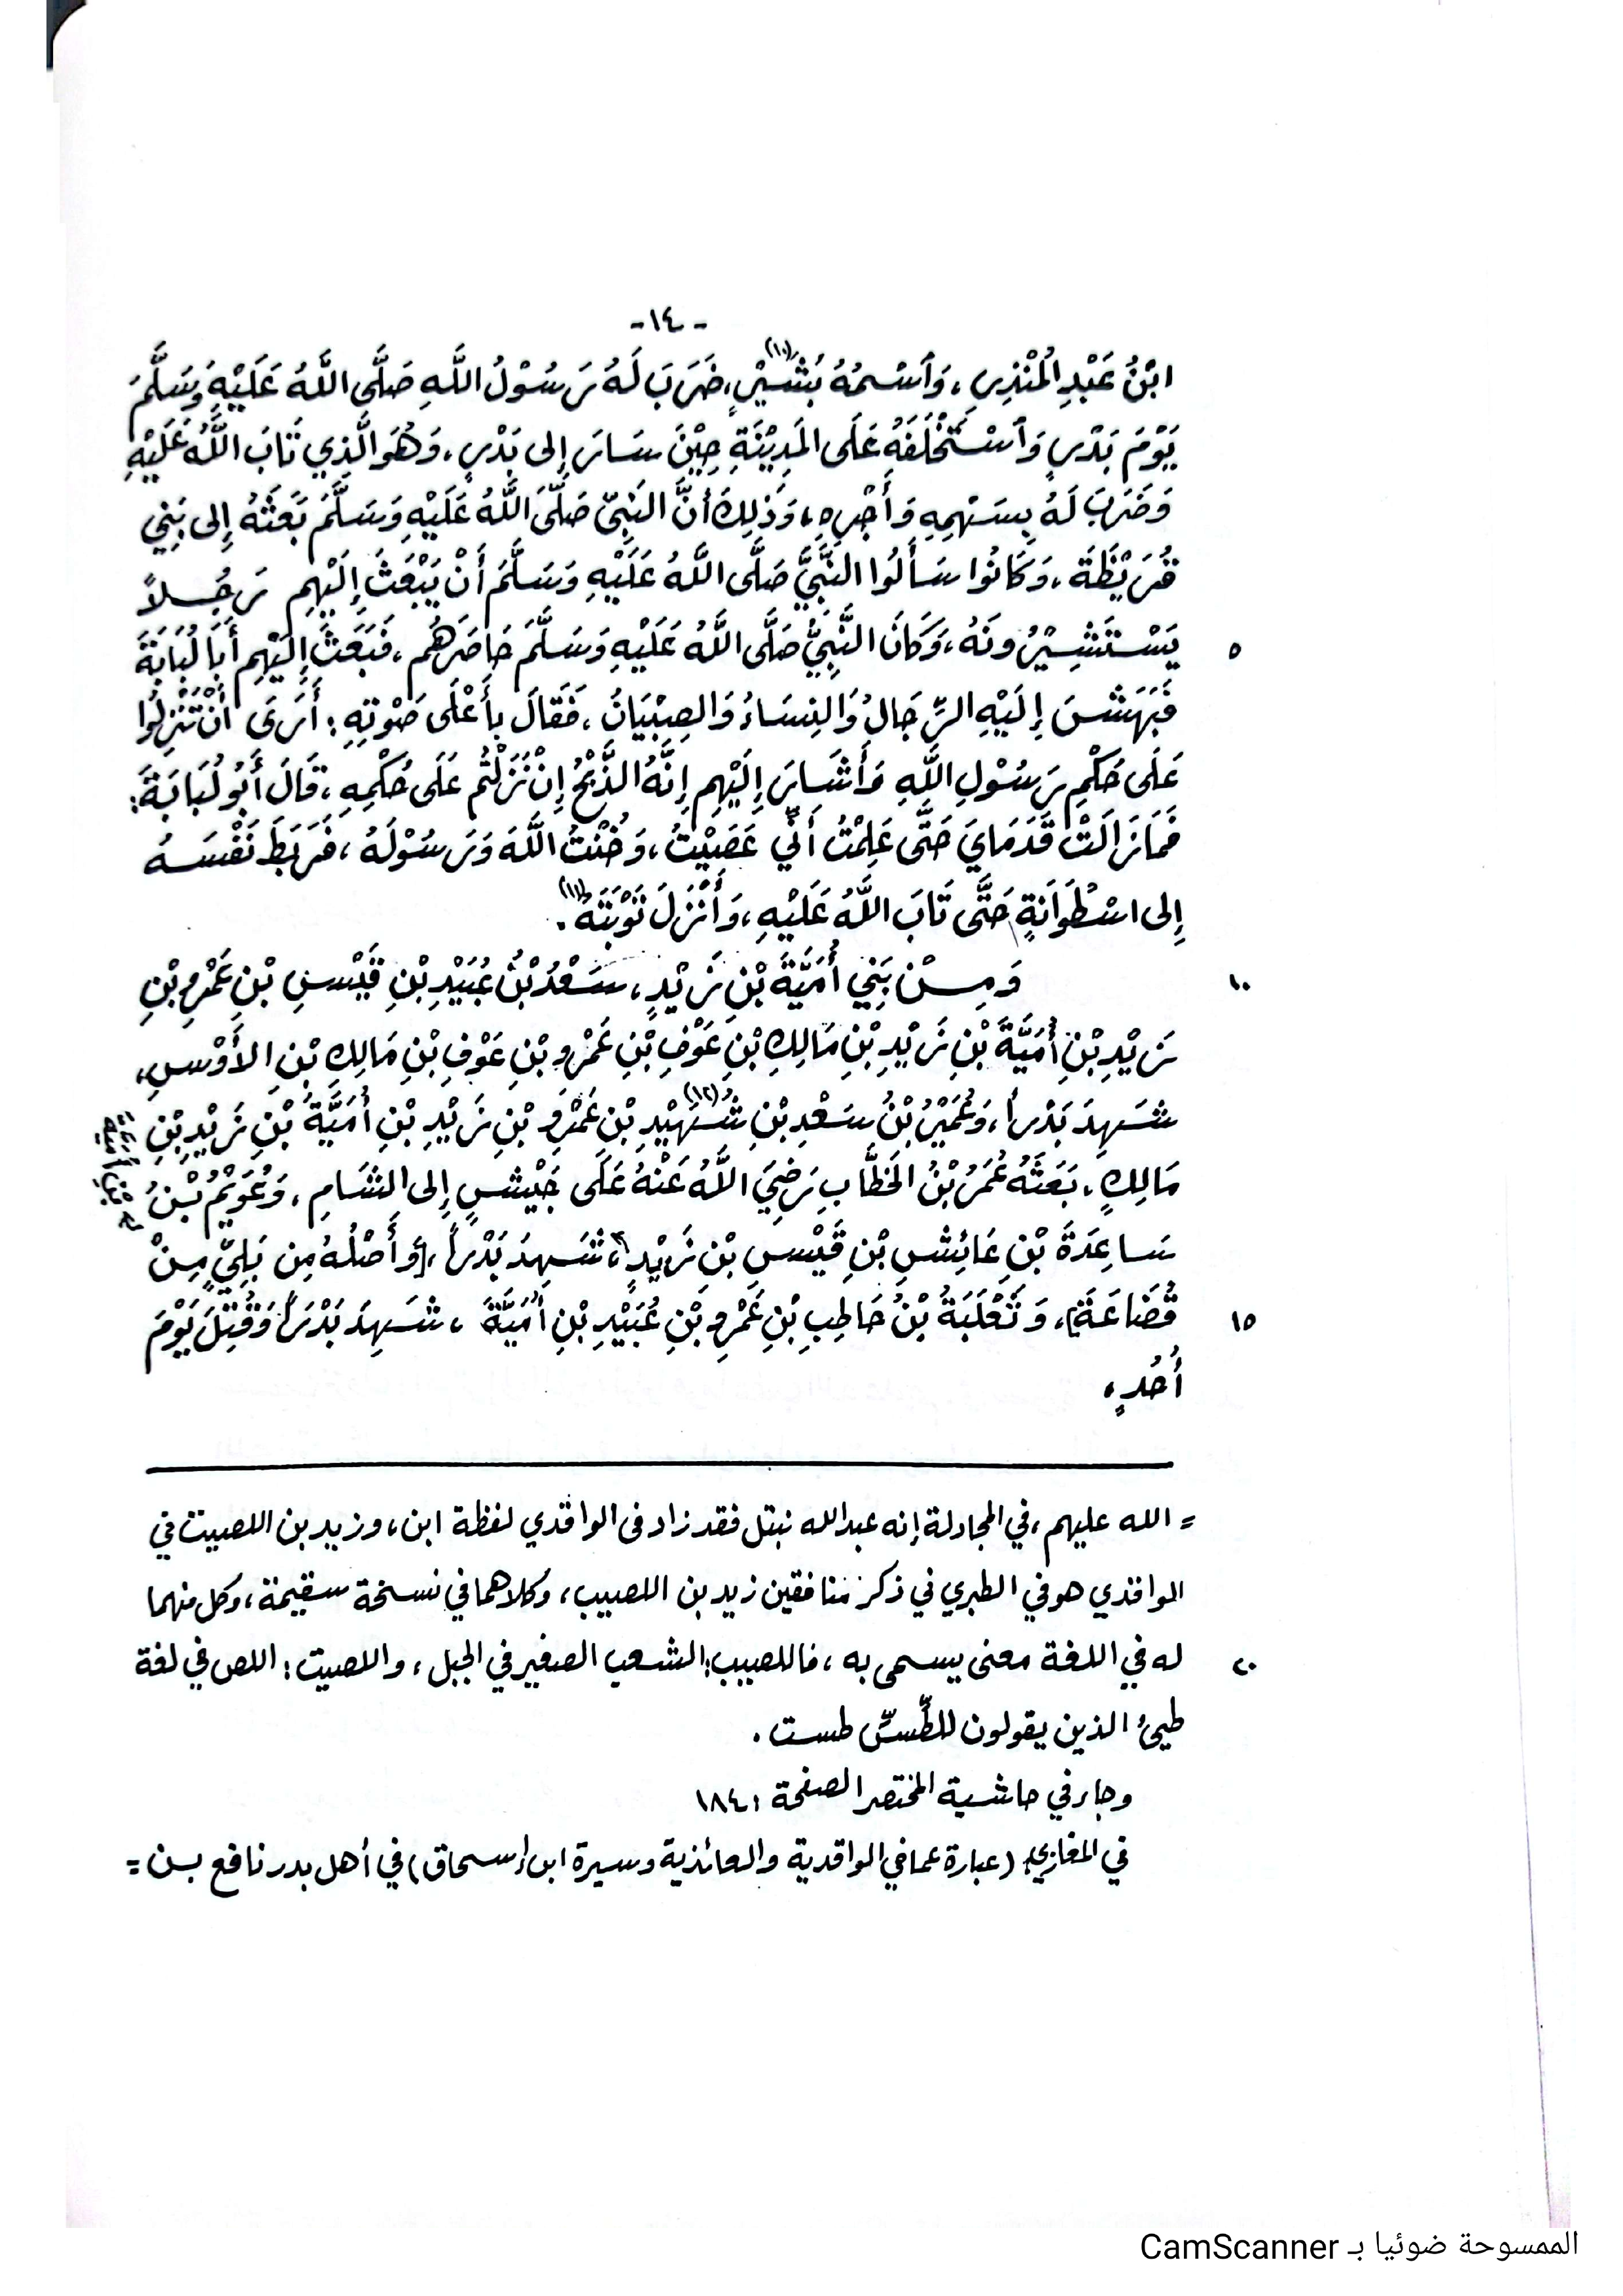 -١٤-
ابْنُ عَبْدِ الْمُنْذِرِ، وَاسْمُهُ بُشَيْرٌ(١٠)، ضَرَبَ لَهُ رَسُوْلُ اللَّهِ صَلَّى اللَّهُ عَلَيْهِ وَسَلَّمَ
يَوْمَ بَدْرٍ وَاسْتَخْلَفَهُ عَلَى المَدِيْنَةِ حِيْنَ سَارَ إِلى بَدْرٍ، وَهُوَ الَّذِي تَابَ اللَّهُ عَلَيْهِ
وَضَرَبَ لَهُ بِسَهْمِهِ وَأَجْرِهِ، وَذٰلِكَ أَنَّ النَبِيَّ صَلَّى اللَّهُ عَلَيْهِ وَسَلَّمَ بَعَثَهُ إِلى بَنِي
قُرَيْظَةَ، وَكَانُوا سَأَلُوا النَّبِيَّ صَلَّى اللَّهُ عَلَيْهِ وَسَلَّمَ أَنْ يَبْعَثَ إِلَيْهِم رَجُلاً
يَسْتَشِيْرُونَهُ، وَكَانَ النَّبِيُّ صَلَّى اللَّهُ عَلَيْهِ وَسَلَّمَ حَاصَرَهُم، فَبَعَثَ إِلَيْهِم أَبَا لُبَابَةَ ٥
فَبَهَشَ إِلَيْهِ الرِّجَالُ وَالنِسَاءُ وَالصِبْيَانُ، فَقَالَ بِأَعْلَى صَوْتِهِ: أَرَى أَنْ تَنْزِلُوا
عَلَى حُكْمِ رَسُوْلِ اللَّهِ وَأَشَارَ إِلَيْهِم إِنَّهُ الذَّبْحُ إِنْ نَزَلْتُم عَلَى حُكْمِهِ، قَالَ أَبُو لُبَابَةَ:
فَمَا زَالَتْ قَدَمَايَ حَتَّى عَلِمْتُ أَنِّي عَصَيْتُ، وَخُنْتُ اللَّهَ وَرَسُوْلَهُ، فَرَبَطَ نَفْسَهُ
إِلى اسْطُوَانَةٍ حَتَّى تَابَ اللَّهُ عَلَيْهِ، وَأَنْزَلَ تَوْبَتَهُ(١١).
وَمِنْ بَنِي أُمَيَّةَ بْنِ زَيْدٍ، سَعْدُ بْنُ عُبَيْدِ بْنِ قَيْسِ بْنِ عَمْرِو بْنِ ١٠
زَيْدِ بْنِ أُمَيَّةَ بْنِ زَيْدِ بْنِ مَالِكِ بْنِ عَوْفِ بْنِ عَمْرِو بْنِ عَوْفِ بْنِ مَالِكِ بْنِ الأَوْسِ،
شَهِدَ بَدْراً، وَعُمَيْرُ بْنُ سَعْدِ بْنِ شُهَيْدِ(١٢) بْنِ عَمْرِو بْنِ زَيْدِ بْنِ أُمَيَّةَ بْنِ زَيْدِ بْنِ
مَالِكٍ، بَعَثَهُ عُمَرُ بْنُ الخَطَّابِ رَضِيَ اللَّهُ عَنْهُ عَلَى جَيْشٍ إِلى الشَامِ، وَعُوَيْمُ بْنُ
سَاعِدَةَ بْنِ عَائِشِ بْنِ قَيْسِ بْنِ زَيْدٍ، شَهِدَ بَدْراً، (وَأَصْلُهُ مِن بَلِيٍّ مِنْ
قُضَاعَةَ)، وَثَعْلَبَةُ بْنُ حَاطِبِ بْنِ عَمْرِو بْنِ عُبَيْدِ بْنِ أُمَيَّةَ، شَهِدَ بَدْراً وَقُتِلَ يَوْمَ ١٥
أُحُدٍ،
= الله عليهم، في المجادلة إنه عبدالله نبتل فقد زاد فى الواقدي لفظة ابن، وزيد بن اللصيت في
الواقدي هو في الطبري في ذكر منافقين زيد بن اللصيب، وكلاهما في نسخة سقيمة، وكل منهما
له في اللغة معنى يسمى به، فاللصيب: الشعب الصغير في الجبل، واللصيت: اللص في لغة ٢٠
طيئ الذين يقولون للطَّسِّ طست.
وجاء في حاشية المختصر الصفحة ١٨٤١
في المغازي (عبارة عما في الواقدية والعائذية وسيرة ابن إسحاق) في أهل بدر نافع بن =
الممسوحة ضوئيا بـ CamScanner